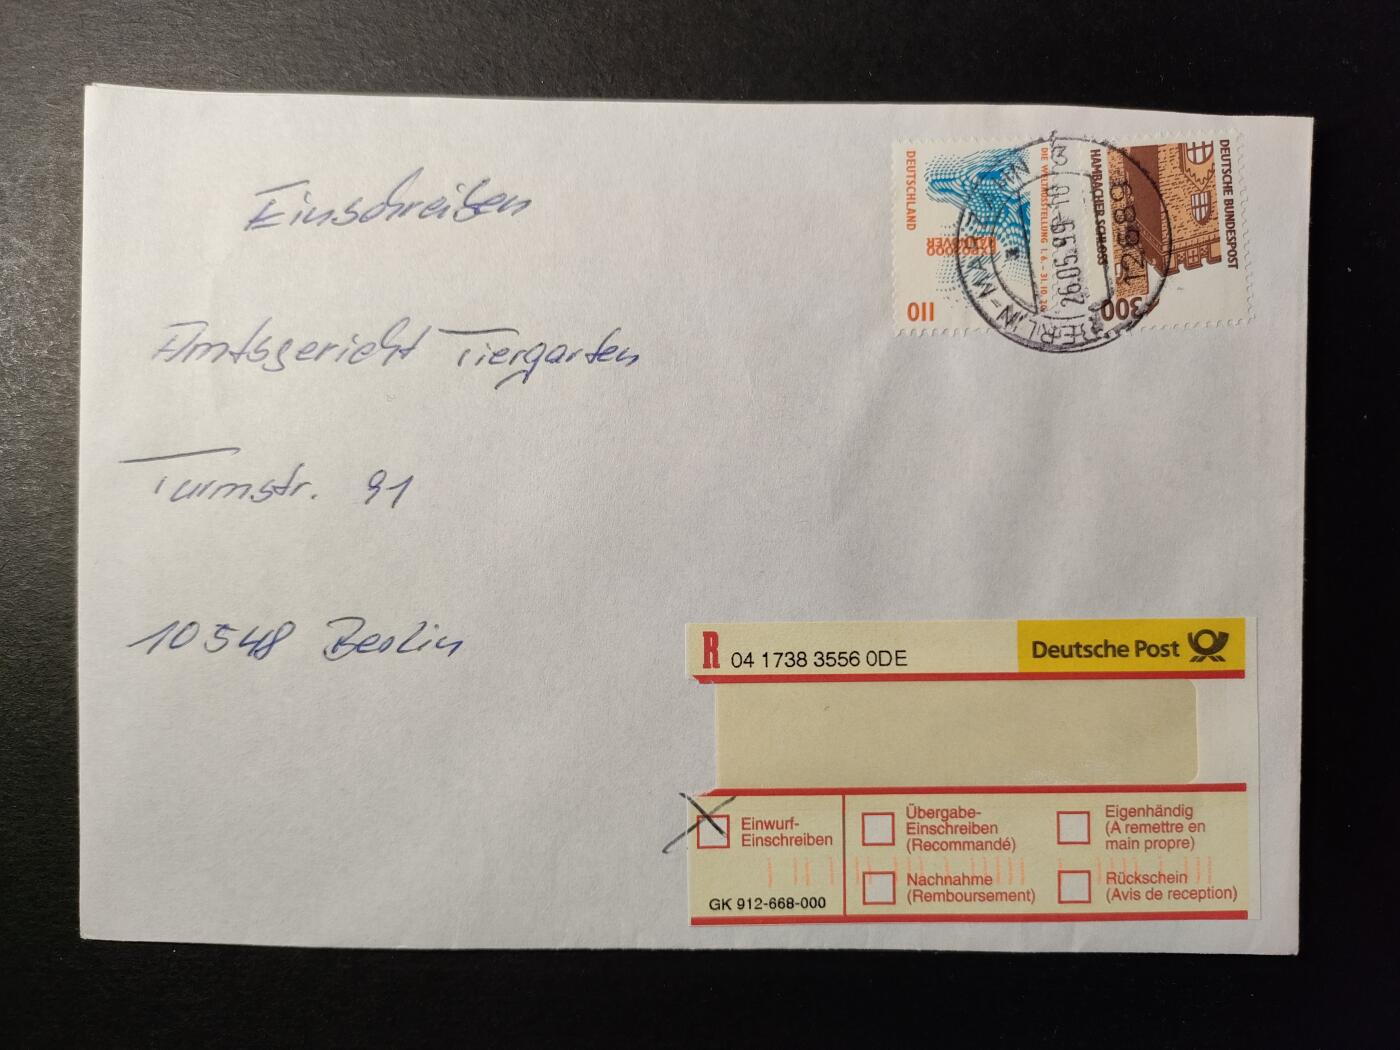 Einschreiben
Amtsgericht Tiergarten
Turmstr. 91
10548 Berlin
DEUTSCHLAND
110
EXPO2000
HANNOVER
DIE WELTAUSSTELLUNG 1.6. – 31.10.20
DEUTSCHE BUNDESPOST
HAMBACHER SCHLOSS
300
12689
26.05.99-10
BERLIN-MA
R 04 1738 3556 0DE
Deutsche Post
Einwurf-
Einschreiben
GK 912-668-000
Übergabe-
Einschreiben
(Recommandé)
Nachnahme
(Remboursement)
Eigenhändig
(A remettre en
main propre)
Rückschein
(Avis de reception)